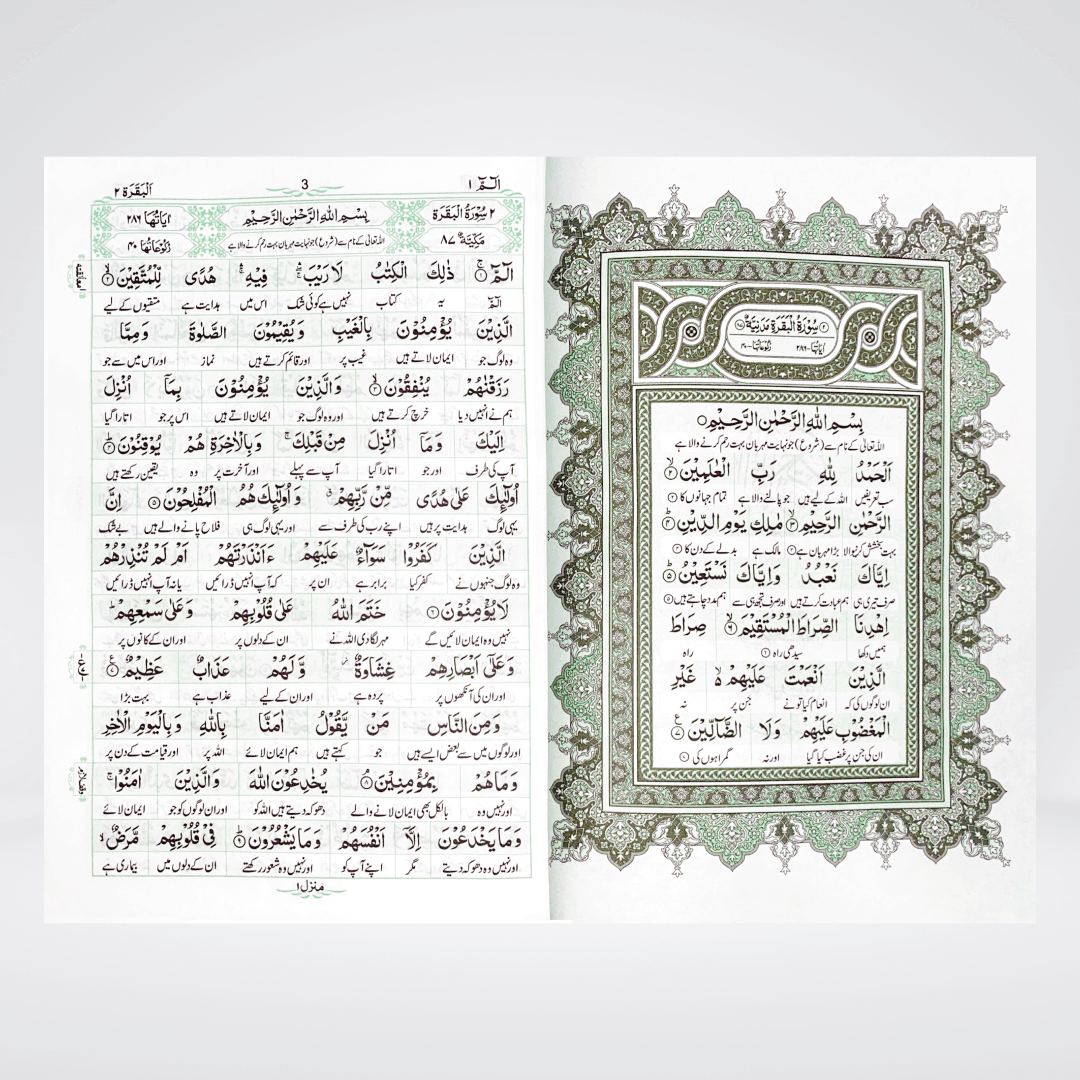 ۲ سُوْرَةُ الْبَقَرَةِ مَدَنِيَّةٌ ۸۷
اٰيَاتُهَا-۲۸۶ رُكُوْعَاتُهَا-۴۰
بِسْمِ اللّٰهِ الرَّحْمٰنِ الرَّحِيْمِ ۝۱
اللہ تعالیٰ کے نام سے (شروع) جو نہایت مہربان بہت رحم کرنے والا ہے
اَلْحَمْدُ لِلّٰهِ رَبِّ الْعٰلَمِيْنَ ۝۲
سب تعریفیں اللہ کے لیے ہیں جو پالنے والا ہے تمام جہانوں کا ۲
الرَّحْمٰنِ الرَّحِيْمِ ۝۳ مٰلِكِ يَوْمِ الدِّيْنِ ۝۴
بہت بخشش کرنیوالا بڑا مہربان ہے مالک ہے بدلے کے دن کا
اِيَّاكَ نَعْبُدُ وَاِيَّاكَ نَسْتَعِيْنُ ۝۵
صرف تیری ہی ہم عبادت کرتے ہیں اور صرف تجھ ہی سے ہم مدد چاہتے ہیں ۵
اِهْدِنَا الصِّرَاطَ الْمُسْتَقِيْمَ ۝۶ صِرَاطَ
ہمیں دکھا سیدھی راہ ۶ راہ
الَّذِيْنَ اَنْعَمْتَ عَلَيْهِمْ ۙ غَيْرِ
ان لوگوں کی کہ انعام کیا تو نے جن پر نہ
الْمَغْضُوْبِ عَلَيْهِمْ وَلَا الضَّآلِّيْنَ ۝۷
ان کی جن پر غضب کیا گیا اور نہ گمراہوں کی ۷
الٓمّٓ ۱ 3 اَلْبَقَرَة ۲
۲ سُوْرَةُ الْبَقَرَةِ بِسْمِ اللّٰهِ الرَّحْمٰنِ الرَّحِيْمِ اٰيَاتُهَا ۲۸۶
مَدَنِيَّةٌ ۸۷ اللہ تعالیٰ کے نام سے (شروع) جو نہایت مہربان بہت رحم کرنے والا ہے رُكُوْعَاتُهَا ۴۰
الٓمّٓ ۝۱ ذٰلِكَ الْكِتٰبُ لَا رَيْبَ ۛ فِيْهِ ۛ هُدًى لِّلْمُتَّقِيْنَ ۝۲
الٓمّٓ یہ کتاب نہیں ہے کوئی شک اس میں ہدایت ہے متقیوں کے لیے
الَّذِيْنَ يُؤْمِنُوْنَ بِالْغَيْبِ وَيُقِيْمُوْنَ الصَّلٰوةَ وَمِمَّا
وہ لوگ جو ایمان لاتے ہیں غیب پر اور قائم کرتے ہیں نماز اور اس میں سے جو
رَزَقْنٰهُمْ يُنْفِقُوْنَ ۝۳ وَالَّذِيْنَ يُؤْمِنُوْنَ بِمَآ اُنْزِلَ
ہم نے انہیں دیا خرچ کرتے ہیں اور وہ لوگ جو ایمان لاتے ہیں اس پر جو اتارا گیا
اِلَيْكَ وَمَآ اُنْزِلَ مِنْ قَبْلِكَ ۚ وَبِالْاٰخِرَةِ هُمْ يُوْقِنُوْنَ ۝۴
آپ کی طرف اور جو اتارا گیا آپ سے پہلے اور آخرت پر وہ یقین رکھتے ہیں
اُولٰٓئِكَ عَلٰى هُدًى مِّنْ رَّبِّهِمْ ۗ وَاُولٰٓئِكَ هُمُ الْمُفْلِحُوْنَ ۝۵ اِنَّ
یہی لوگ ہدایت پر ہیں اپنے رب کی طرف سے اور یہی لوگ ہی فلاح پانے والے ہیں بے شک
الَّذِيْنَ كَفَرُوْا سَوَآءٌ عَلَيْهِمْ ءَاَنْذَرْتَهُمْ اَمْ لَمْ تُنْذِرْهُمْ
وہ لوگ جنہوں نے کفر کیا برابر ہے ان پر کہ آپ انہیں ڈرائیں یا نہ آپ انہیں ڈرائیں
لَا يُؤْمِنُوْنَ ۝۶ خَتَمَ اللّٰهُ عَلٰى قُلُوْبِهِمْ وَعَلٰى سَمْعِهِمْ ۭ
نہیں وہ ایمان لائیں گے مہر لگا دی اللہ نے ان کے دلوں پر اور ان کے کانوں پر
وَعَلٰٓى اَبْصَارِهِمْ غِشَاوَةٌ ۡ وَّلَهُمْ عَذَابٌ عَظِيْمٌ ۝۷
اور ان کی آنکھوں پر پردہ ہے اور ان کے لیے عذاب ہے بہت بڑا
وَمِنَ النَّاسِ مَنْ يَّقُوْلُ اٰمَنَّا بِاللّٰهِ وَبِالْيَوْمِ الْاٰخِرِ
اور لوگوں میں سے بعض ایسے ہیں جو کہتے ہیں ہم ایمان لائے اللہ پر اور قیامت کے دن پر
وَمَا هُمْ بِمُؤْمِنِيْنَ ۝۸ يُخٰدِعُوْنَ اللّٰهَ وَالَّذِيْنَ اٰمَنُوْا ۚ
اور نہیں وہ بالکل بھی ایمان لانے والے دھوکہ دیتے ہیں اللہ کو اور ان لوگوں کو جو ایمان لائے
وَمَا يَخْدَعُوْنَ اِلَّآ اَنْفُسَهُمْ وَمَا يَشْعُرُوْنَ ۝۹ فِيْ قُلُوْبِهِمْ مَّرَضٌ ۙ
اور نہیں وہ دھوکہ دیتے مگر اپنے آپ کو اور نہیں وہ شعور رکھتے ان کے دلوں میں بیماری ہے
منزل ۱